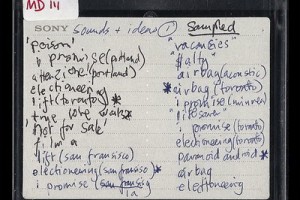 MD 111
SONY sounds + ideas ①
"poison"
i promise (portland)
attenzione (portland)
electioneering
lift (toronto)
true love waits
not for sale
f.i.m.a
lift (san fransisco)
electioneering (san fransiso)
i promise (san fransis
la)
Sampled
"vacancies"
"salty"
airbag (acoustic)
airbag (toronto)
i promise (
"lifesaver"
i promise (toronto)
electioneering (toronto)
paranoid android
airbag
electioneering